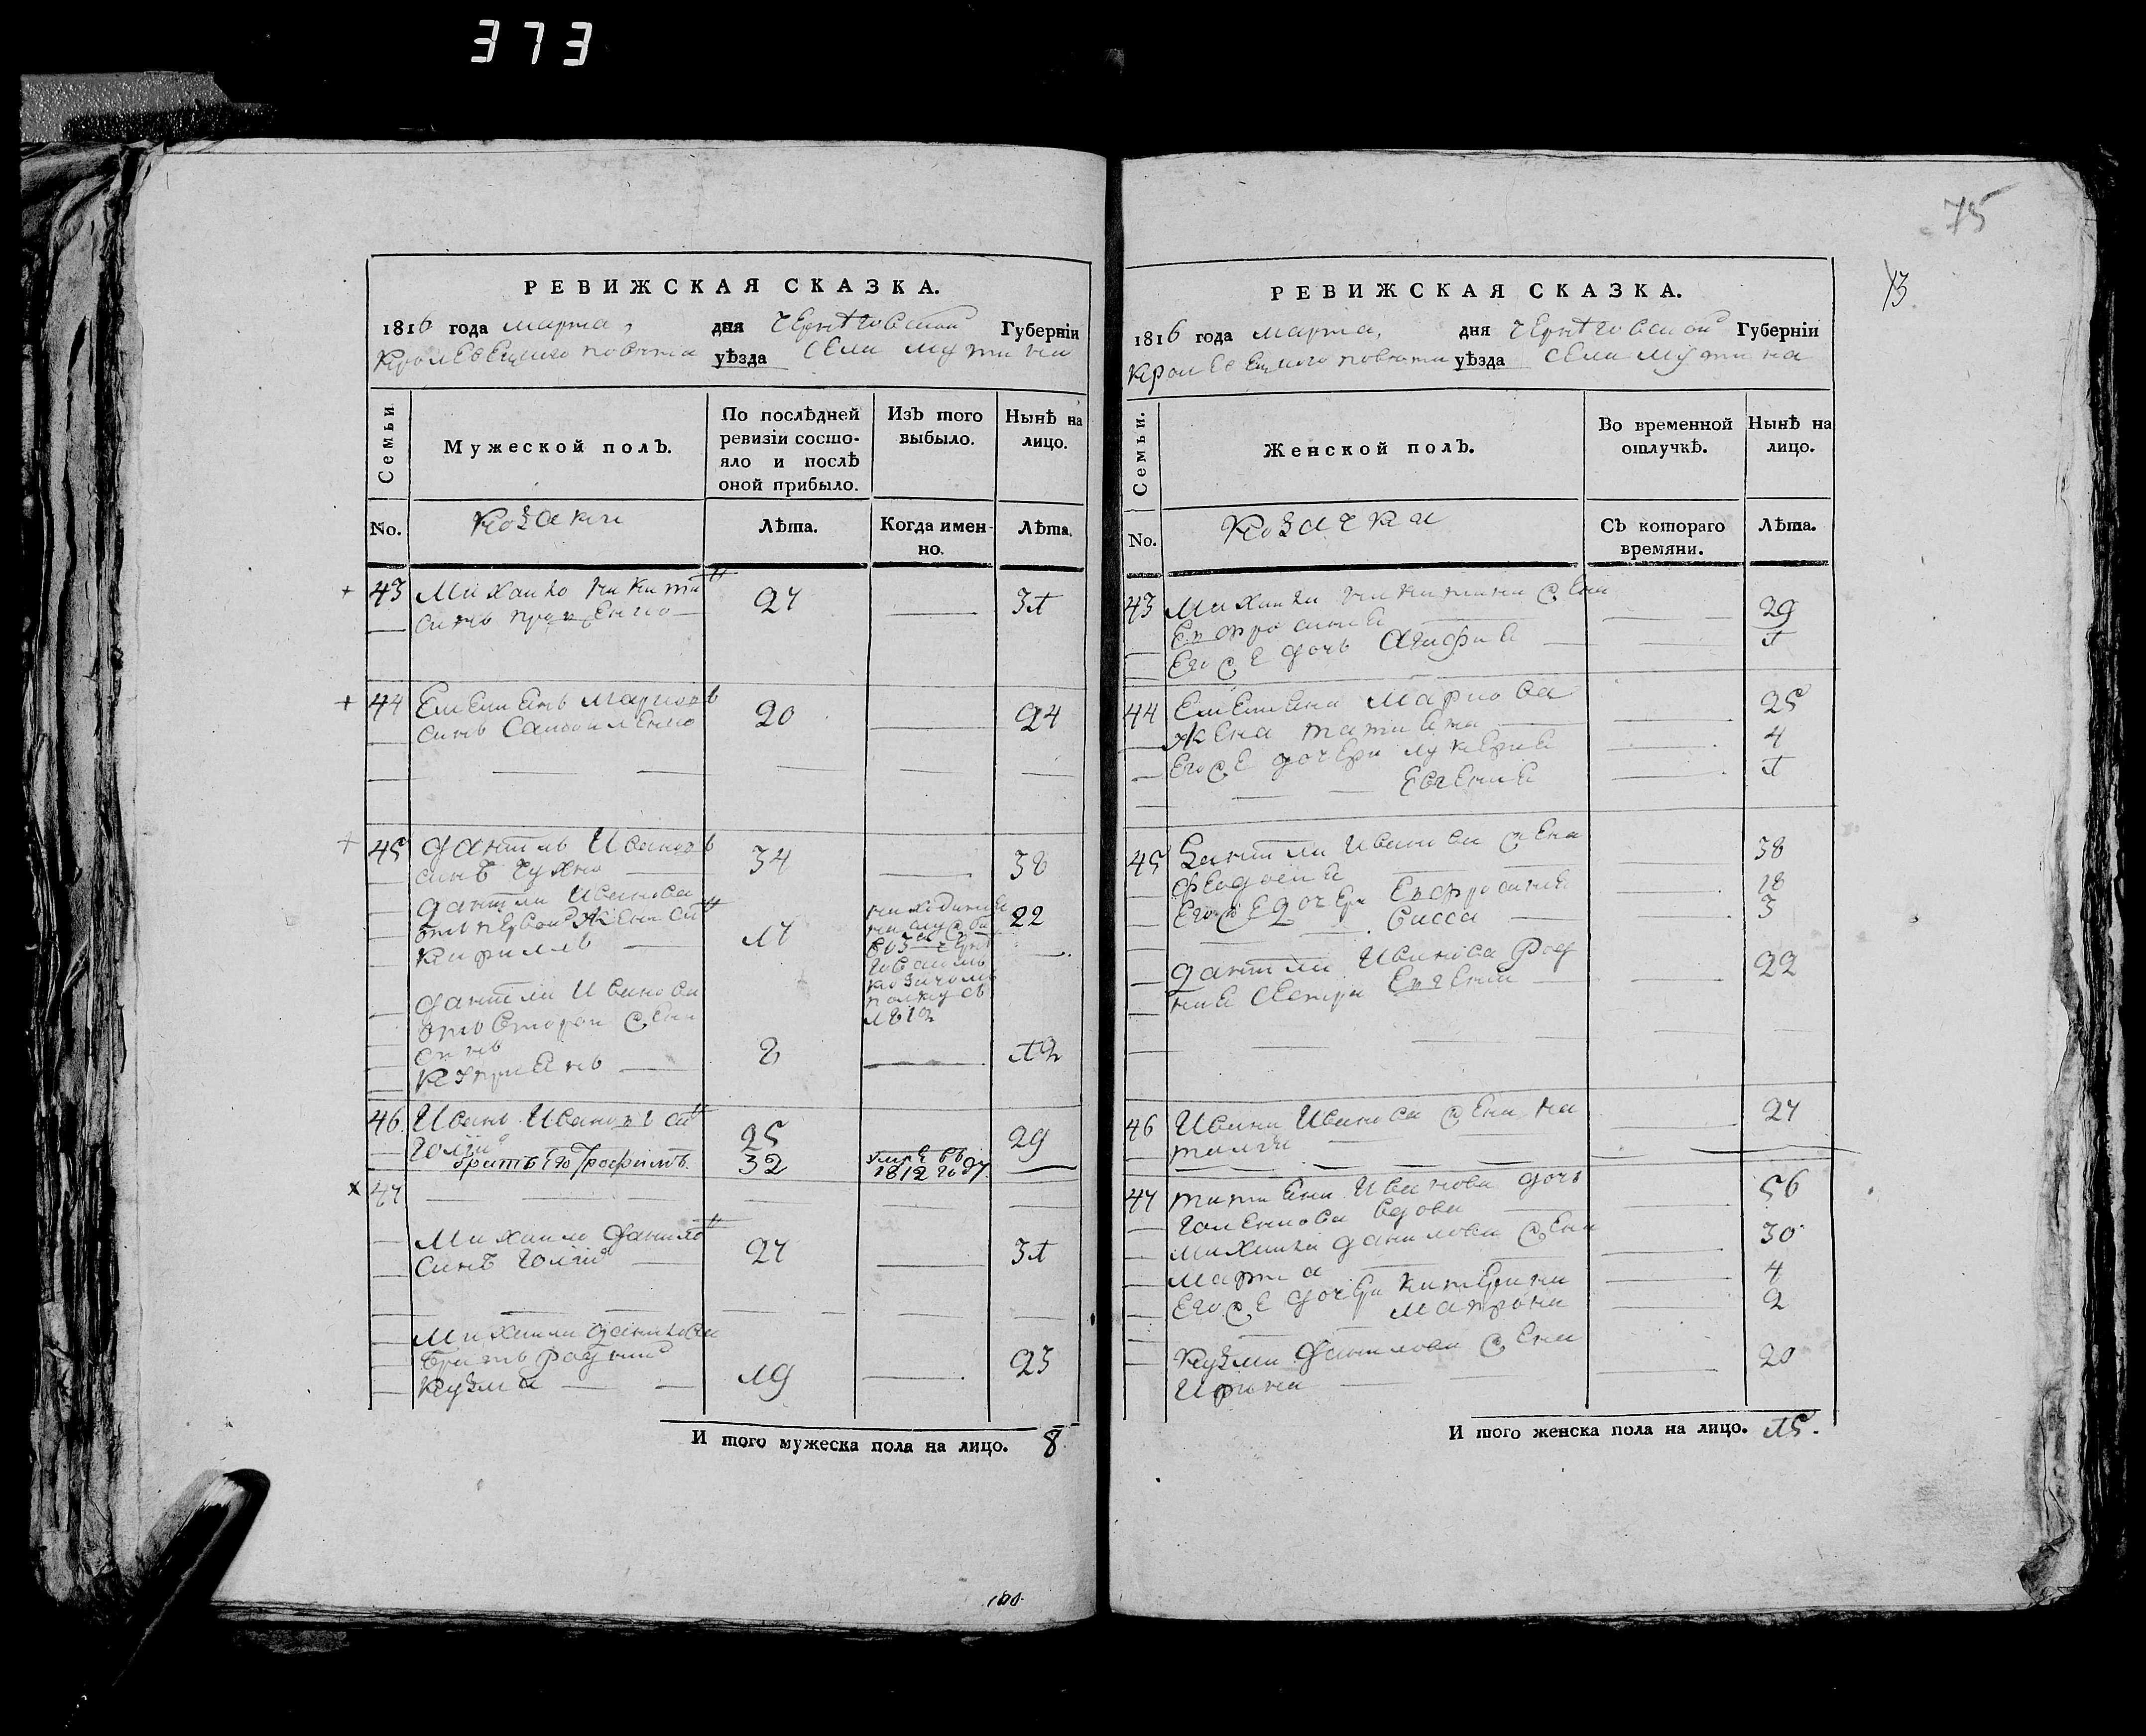 373
РЕВИЖСКАЯ СКАЗКА.
1816 года марта, дня Черніговской Губерніи
Кролевецкого повѣта уѣзда села Мутина
Семьи
Мужеской полъ.
По послѣдней ревизіи состо-
яло и послѣ
оной прибыло.
Изъ того
выбыло.
Нынѣ на
лицо.
No.
Козаки
Лѣта.
Когда имен-
но.
Лѣта.
43 Михайло Никитинъ
синъ 27 31
44 Емельянъ Марковъ
синъ Самойленко 20 24
45 Данило Ивановъ
синъ Чухно 34 38
Данили Иванова
отъ первой жени синъ
Кирилъ 17 22
находится
на службе
въ 3м Черні
говскомъ
козачомъ
полку съ
1812
Данили Иванова
отъ второй жени
синъ
Киприянъ 8 12
46. Иванъ Ивановъ синъ
Голій 25 29
братъ его Трофимъ. 32 умре въ
1812 году.
47
Михайло Даниловъ
синъ Голій 27 31
Михайли Данилова
братъ родний
Кузма 19 23
И того мужеска пола на лицо. 8.
75
73
РЕВИЖСКАЯ СКАЗКА.
1816 года марта, дня Черніговской Губерніи
Кролевецкого повѣта уѣзда села Мутина
Семьи.
Женской полъ.
Во временной
отлучкѣ.
Нынѣ на
лицо.
No.
Козачки
Съ котораго
времяни.
Лѣта.
43 Михайли Никитина жена
Ефросиния 29
Его же дочь Агафия 1
44 Емельяна Маркова
жена Татияна 25
Его же дочери Лукерия 4
Евгения 1
45 Данили Иванова жена
Феодосия 38
Его же 2 дочери Ефросиния 18
Васса 3
Данили Иванова род
ная сестра Евгения 22
46 Ивана Иванова жена На
талия 27
47 Татияна Иванова дочь
Голенкова вдова 56
Михайли Данилова жена
Марфа 30
Его же дочери Катерина 4
Матрона 2
Кузми Данилова жена
Ирина 20
И того женска пола на лицо. 15.